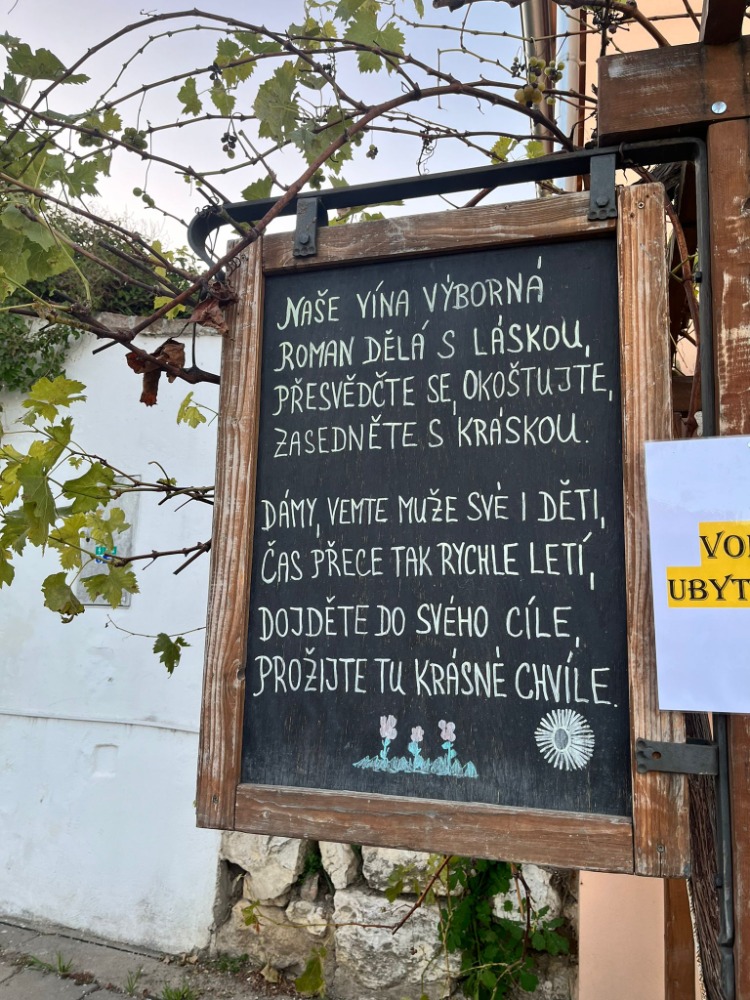 NAŠE VÍNA VÝBORNÁ
ROMAN DĚLÁ S LÁSKOU,
PŘESVĚDČTE SE, OKOŠTUJTE,
ZASEDNĚTE S KRÁSKOU.
DÁMY, VEMTE MUŽE SVÉ I DĚTI,
ČAS PŘECE TAK RYCHLE LETÍ,
DOJDĚTE DO SVÉHO CÍLE,
PROŽIJTE TU KRÁSNÉ CHVÍLE.